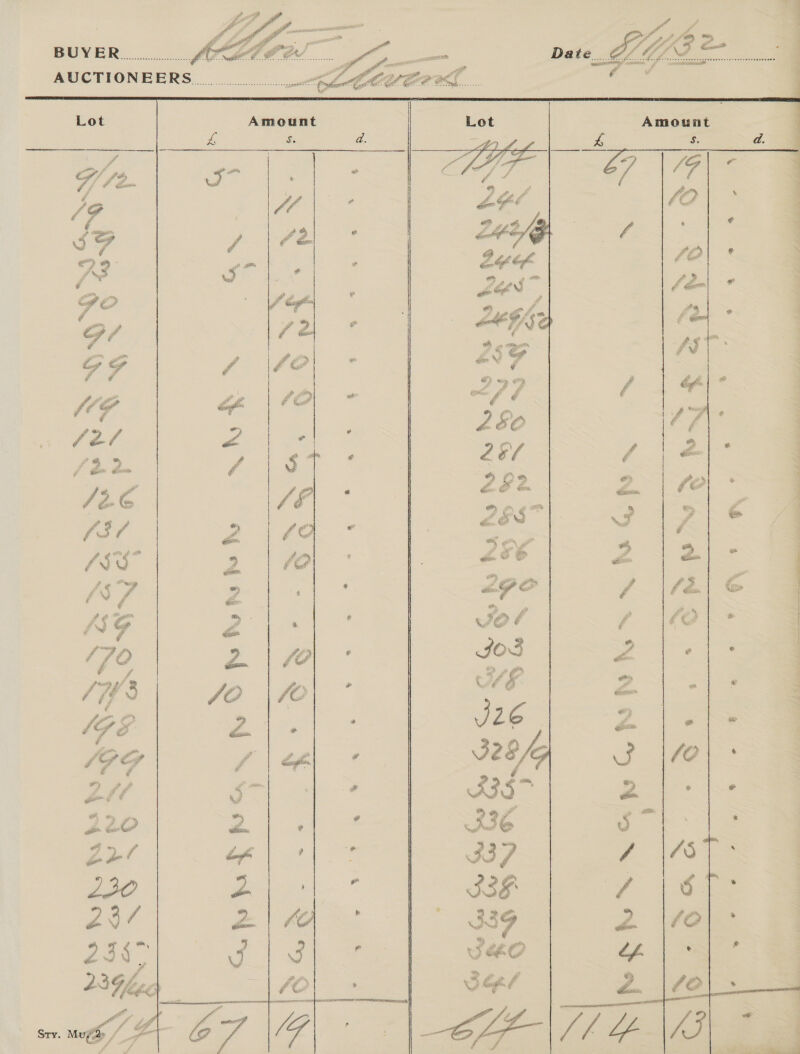 BUYER Allow Date 8/11/32
AUCTIONEERS Stevens
Lot Amount Lot Amount
£ s. d. £ s. d.
9/12 5 - - B/F 67 19 -
19 11 - 241 10 -
59 1 12 - 242/3 1 - -
73 5 - - 244 10 -
90 14 - 245 12 -
91 12 - 249/50 12 -
99 1 10 - 259 15 -
119 4 10 - 277 1 4 -
121 2 - - 280 17 -
122 1 5 - 281 1 2 -
126 18 - 282 2 10 -
131 2 10 - 285 3 7 6
155 2 10 - 286 2 2 -
157 2 - - 290 1 12 6
159 2 - - 301 1 10 -
170 2 10 - 303 2 - -
171/3 10 10 - 318 2 - -
198 2 - - 326 2 - -
199 1 4 - 328/9 3 10 -
211 5 - - 335 2 - -
220 2 - - 336 5 - -
221 4 - - 337 1 15 -
230 2 - - 338 1 5 -
231 2 10 - 339 2 10 -
235 3 3 - 340 4 - -
239/40 10 - 341 2 10 -
Sty. Mu. 2 C/F 67 19 - C/F 114 13 -